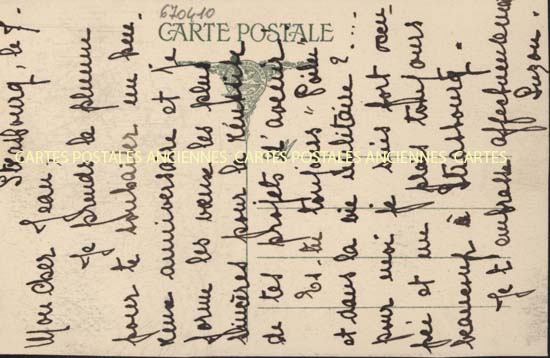 670410
CARTE POSTALE
Strasbourg, le 7.
Mon cher Jean
Je prends la plume
pour te souhaiter un heu-
reux anniversaire et je
forme les vœux les plus
sincères pour la réussite
de tes projets d'avenir
Es-tu toujours "Poilu"
et dans la vie militaire ? ....
pour moi je suis fort occu-
pée et me plais toujours
beaucoup à Strasbourg.
Je t'embrasse affectueusement
Suzon.
CARTES POSTALES ANCIENNES CARTES POSTALES ANCIENNES CARTES